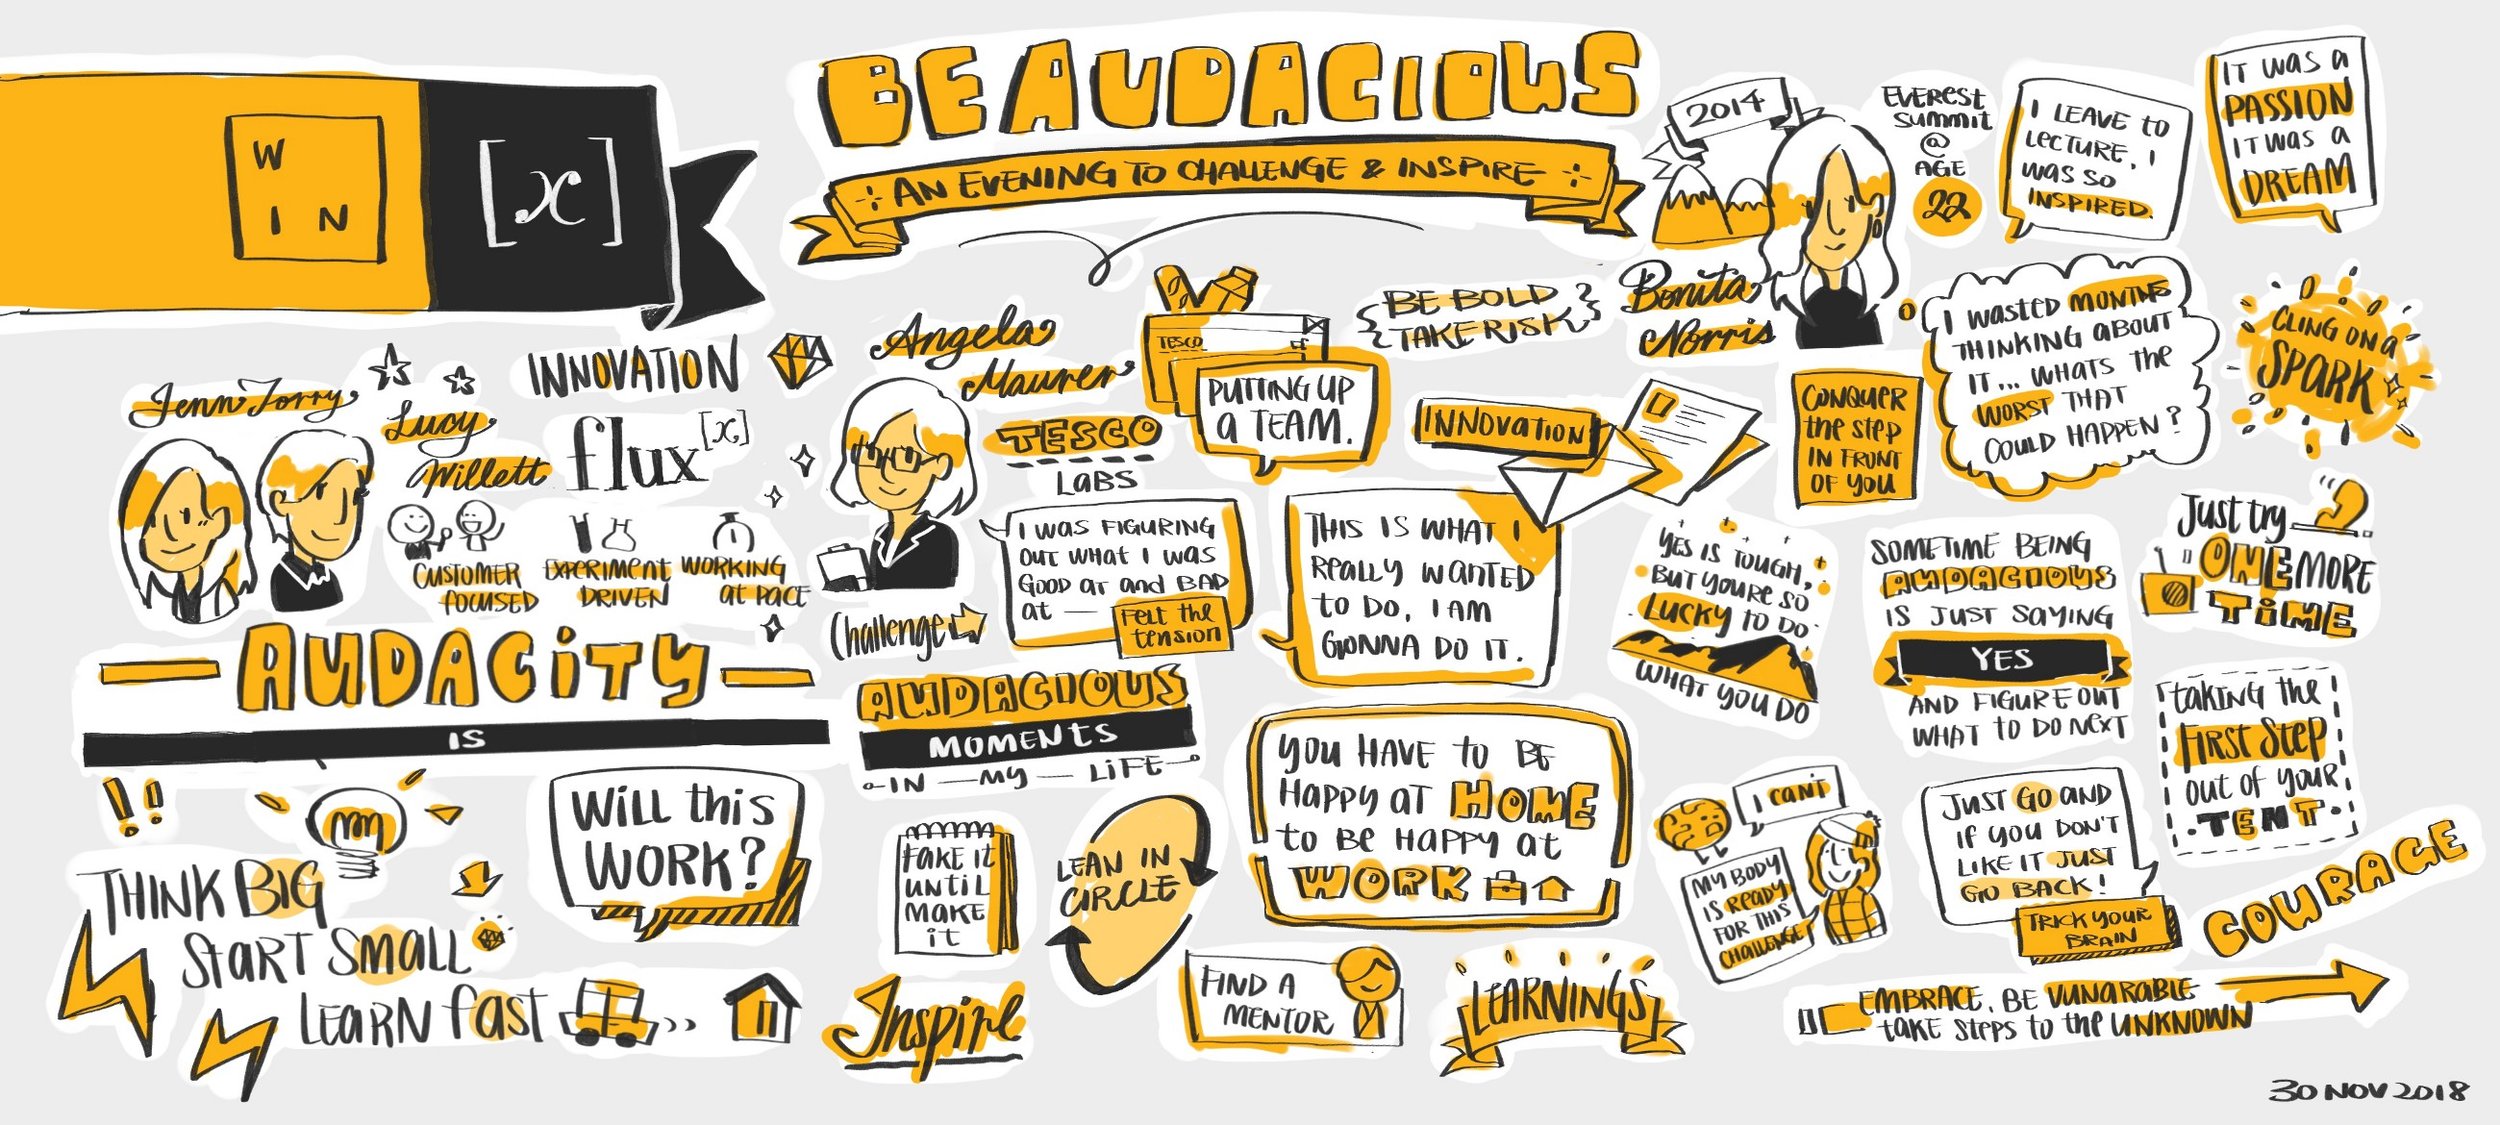 W
I N
[x]
BE AUDACIOUS
AN EVENING TO CHALLENGE & INSPIRE
Jenn Torry
Lucy
Willett
INNOVATION
flux[x]
CUSTOMER
FOCUSED
EXPERIMENT
DRIVEN
WORKING
at PACE
AUDACITY
IS
!!
THINK BIG
START SMALL
LEARN fast
Will this
WORK?
Angela
Maurer
TESCO
LABS
TESCO
PUTTING UP
A TEAM.
BE BOLD
TAKE RISK
INNOVATION
I WAS FIGURING
OUT WHAT I WAS
GOOD AT and BAD
at —
FELT the
tension
Challenge
THIS IS WHAT I
REALLY WANTED
to DO, I AM
GONNA DO IT.
AUDACIOUS
MOMENTS
IN — MY — LIFE
FAKE IT
UNTIL
MAKE
it
LEAN IN
CIRCLE
YOU HAVE to BE
HAPPY AT HOME
to BE HAPPY at
WORK
Inspire
FIND A
MENTOR
LEARNINGS
2014
Bonita
Norris
EVEREST
SUMMIT
@
AGE
22
I LEAVE to
LECTURE, I
WAS SO
INSPIRED.
IT WAS A
PASSION
IT WAS A
DREAM
CONQUER
the STEP
IN FRONT
OF YOU
I WASTED MONTHS
THINKING ABOUT
IT... WHATS the
WORST THAT
COULD HAPPEN?
CLING ON A
SPARK
YES IS TOUGH,
BUT YOURE SO
LUCKY TO DO
WHAT YOU DO
SOMETIME BEING
AUDACIOUS
IS JUST SAYING
YES
AND FIGURE OUT
WHAT TO DO NEXT
Just try
ONE MORE
TIME
taking the
FIRST STEP
out of your
TENT
I CAN'T
MY BODY
IS READY
FOR THIS
CHALLENGE
JUST GO AND
IF YOU DON'T
LIKE IT JUST
GO BACK!
TRICK YOUR
BRAIN
COURAGE
EMBRACE, BE VUNARABLE
take steps to the UNKNOWN
30 NOV 2018